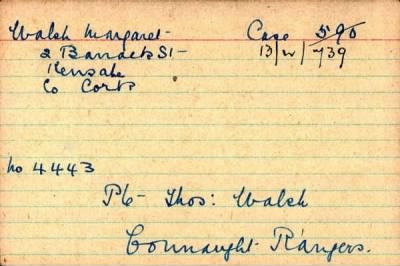 Walsh Margaret
Case 590
2 Barrack St
13/W/739
Kensale
Co Cork
No 4443
Pte Thos: Walsh
Connaught Rangers.